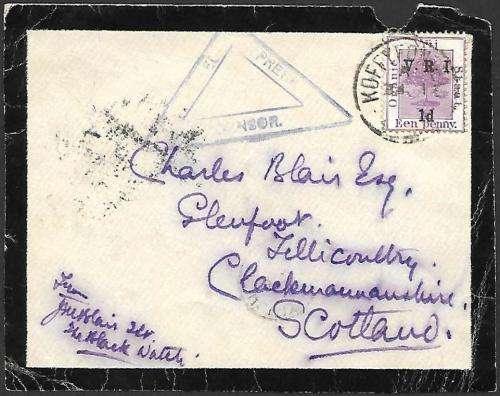 PRE
CENSOR.
KOFFYF
V.R.I.
1d
Een penny.
Charles Blair Esq.
Glenfoot.
Tillicoultry.
Clackmannanshire.
Scotland.
From
Blair
The Black Watch.